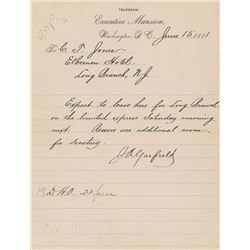 TELEGRAM.
Executive Mansion,
Washington, D. C. June 15, 1881
To C. T. Jones
Elberon Hotel,
Long Branch, N.J.
Expect to leave here for Long Branch
on the limited express Saturday morning
next. Reserve one additional room
for secretary.
J. A. Garfield
19 D. H. O.